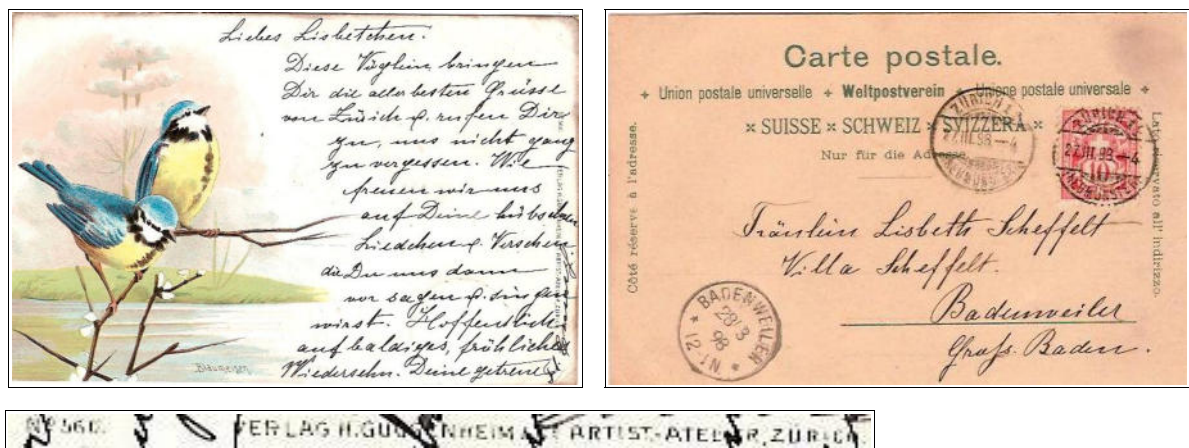 Liebes Lisbetchen.
Diese Vöglein bringen
Dir die allerbesten Grüsse
von Zürich & rufen Dir
zu, uns nicht ganz
zu vergessen. Wie
freuen wir uns
auf Deine hübschen
Liedchen & Verschen
die Du uns dann
vor sagen & singen
wirst. Hoffentlich
auf baldiges, fröhliches
Wiedersehn. Deine getreue
Blaumeisen
Carte postale.
Union postale universelle + Weltpostverein + Unione postale universale
× SUISSE × SCHWEIZ × SVIZZERA ×
Nur für die Adresse.
Côté réservé à l'adresse.
Lato riservato all' indirizzo.
ZÜRICH
27.III.98.-4
NEUMÜNSTER
ZÜRICH
27.III.98.-4
NEUMÜNSTER
10
Fräulein Lisbeth Scheffelt
Villa Scheffelt.
Badenweiler
Grofs. Baden.
BADENWEILER
28/3
98
12-1N
VERLAG H. GUGGENHEIM ARTIST.-ATELIER, ZÜRICH